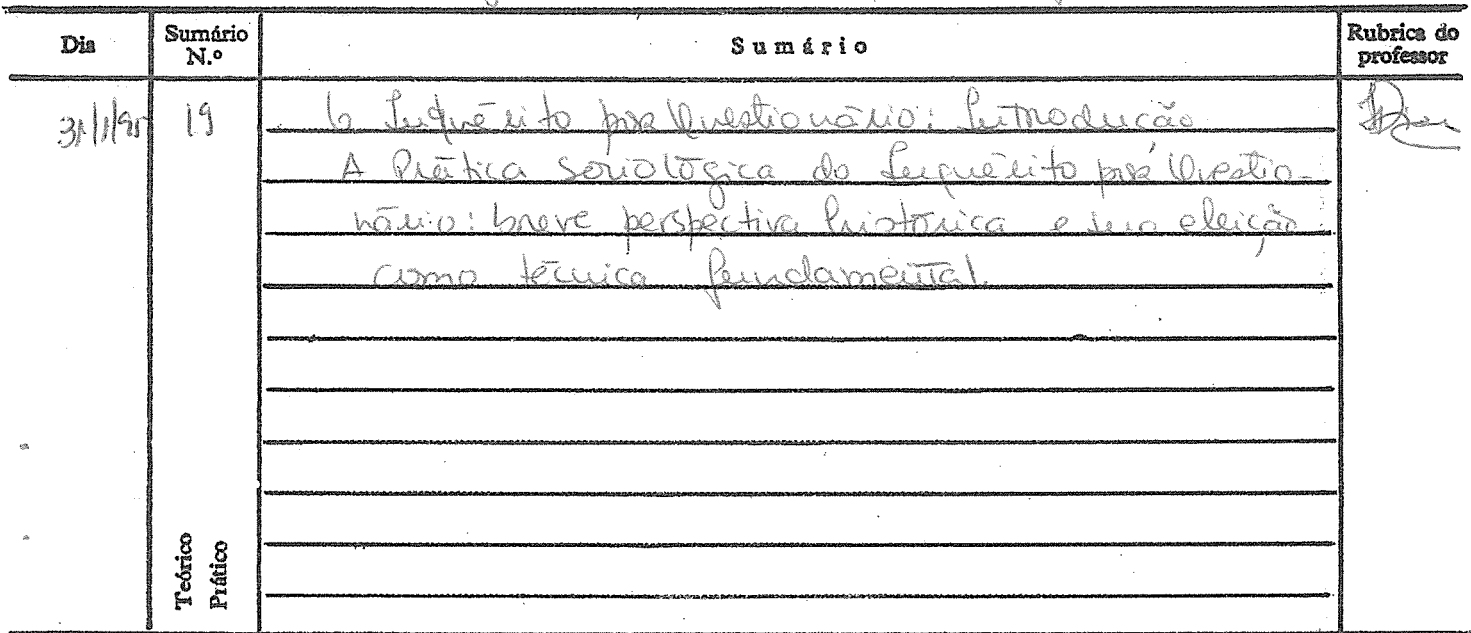 Dia
Sumário N.º
Sumário
Rubrica do professor
31/1/95
19
O Inquérito por Questionário: Introdução
A Prática Sociológica do Inquérito por Questio-
nário: breve perspectiva histórica e sua eleição
como técnica fundamental.
Teórico
Prático